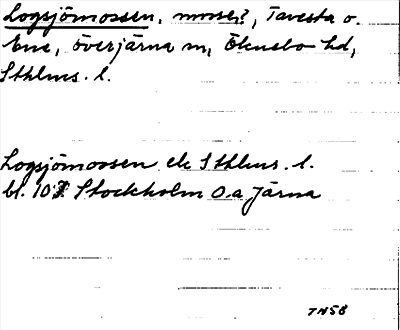 Logsjömossen, mosse?, Tavesta o.
Ene, Överjärna sn, Öknebo hd,
Sthlms. l.
Logsjömossen ek Sthlms. l.
bl. 107. Stockholm O.a Järna
7N58